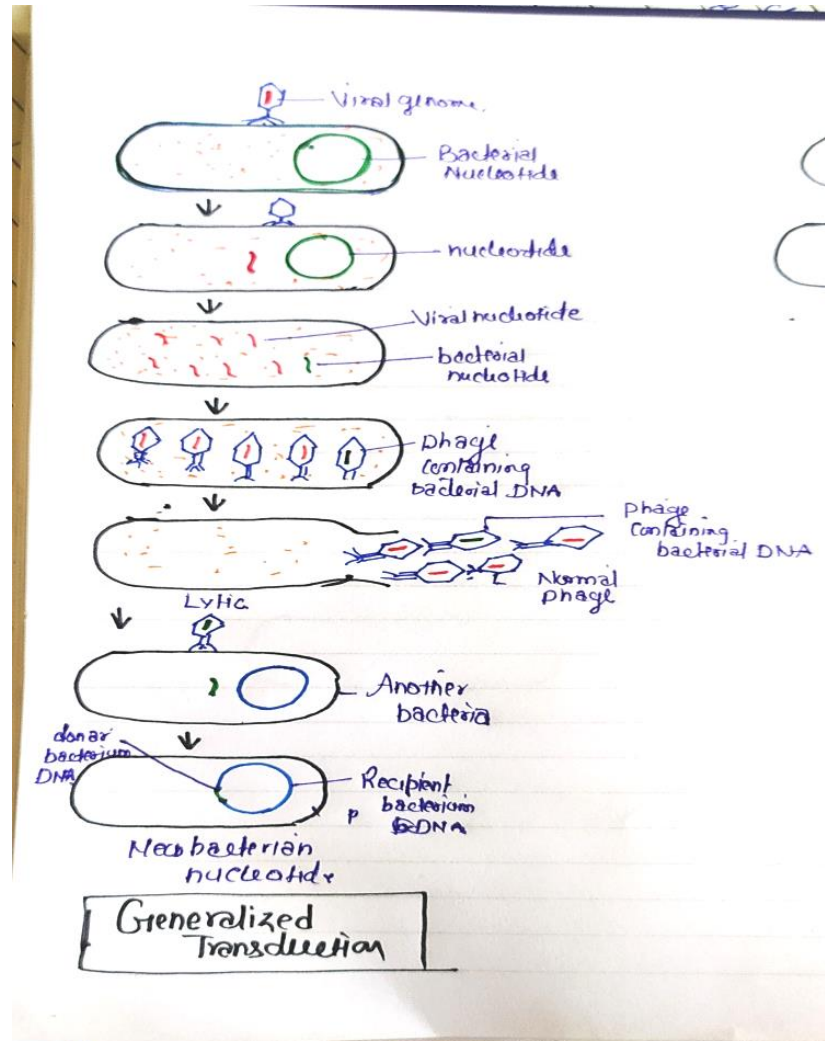 Viral genome.
Bacterial
Nucleotide
nucleotide
Viral nucleotide
bacterial
nucleotide
phage
containing
bacterial DNA
phage
containing
bacterial DNA
Normal
phage
Lytic
Another
bacteria
donar
bacterium
DNA
Recipient
bacterium
DNA
P
bacterian
nucleotide
Generalized
Transduction